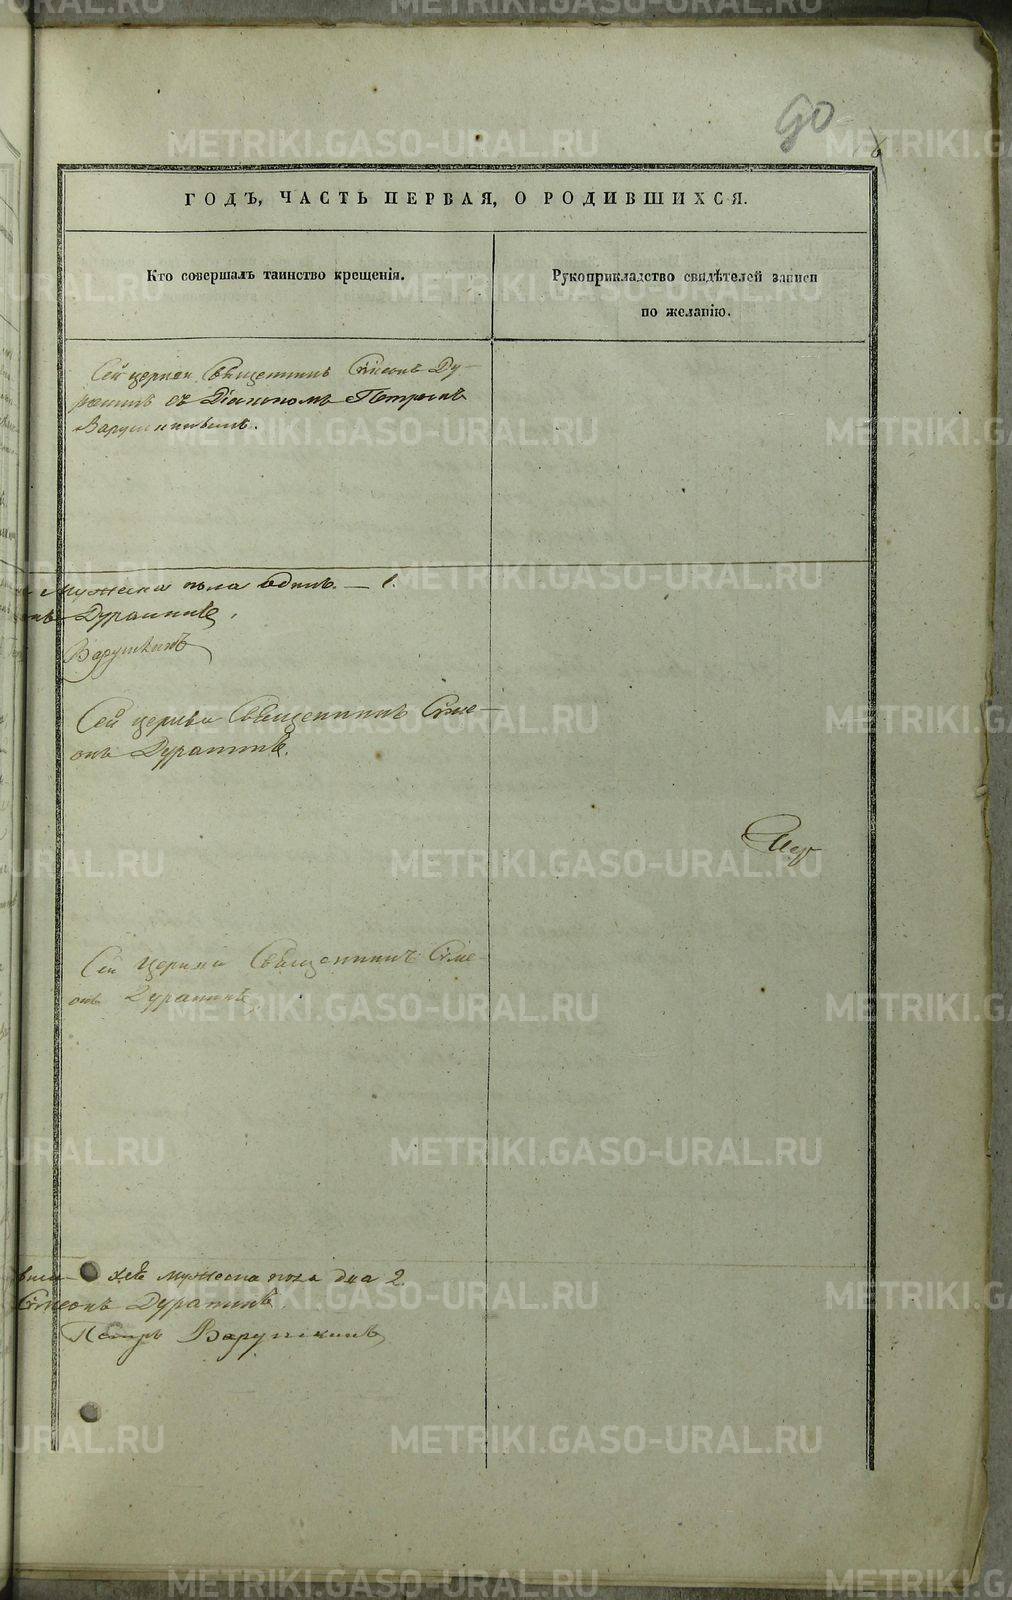 90
6
ГОДЪ, ЧАСТЬ ПЕРВАЯ, О РОДИВШИХСЯ.
Кто совершалъ таинство крещенія.
Рукоприкладство свидѣтелей записи
по желанію.
Сей церкви Священникъ Сѵмеонъ Ду-
рагинъ съ Діакономъ Петромъ
Варушкинымъ.
Мужеска пола одинъ — 1.
онъ Дурагинъ,
Варушкинъ
Сей церкви Священникъ Сѵме-
онъ Дурагинъ.
Сей церкви Священникъ Сѵме
онъ Дурагинъ
мужеска пола два 2.
Сѵмеонъ Дурагинъ.
Петръ Варушкинъ
METRIKI.GASO-URAL.RU